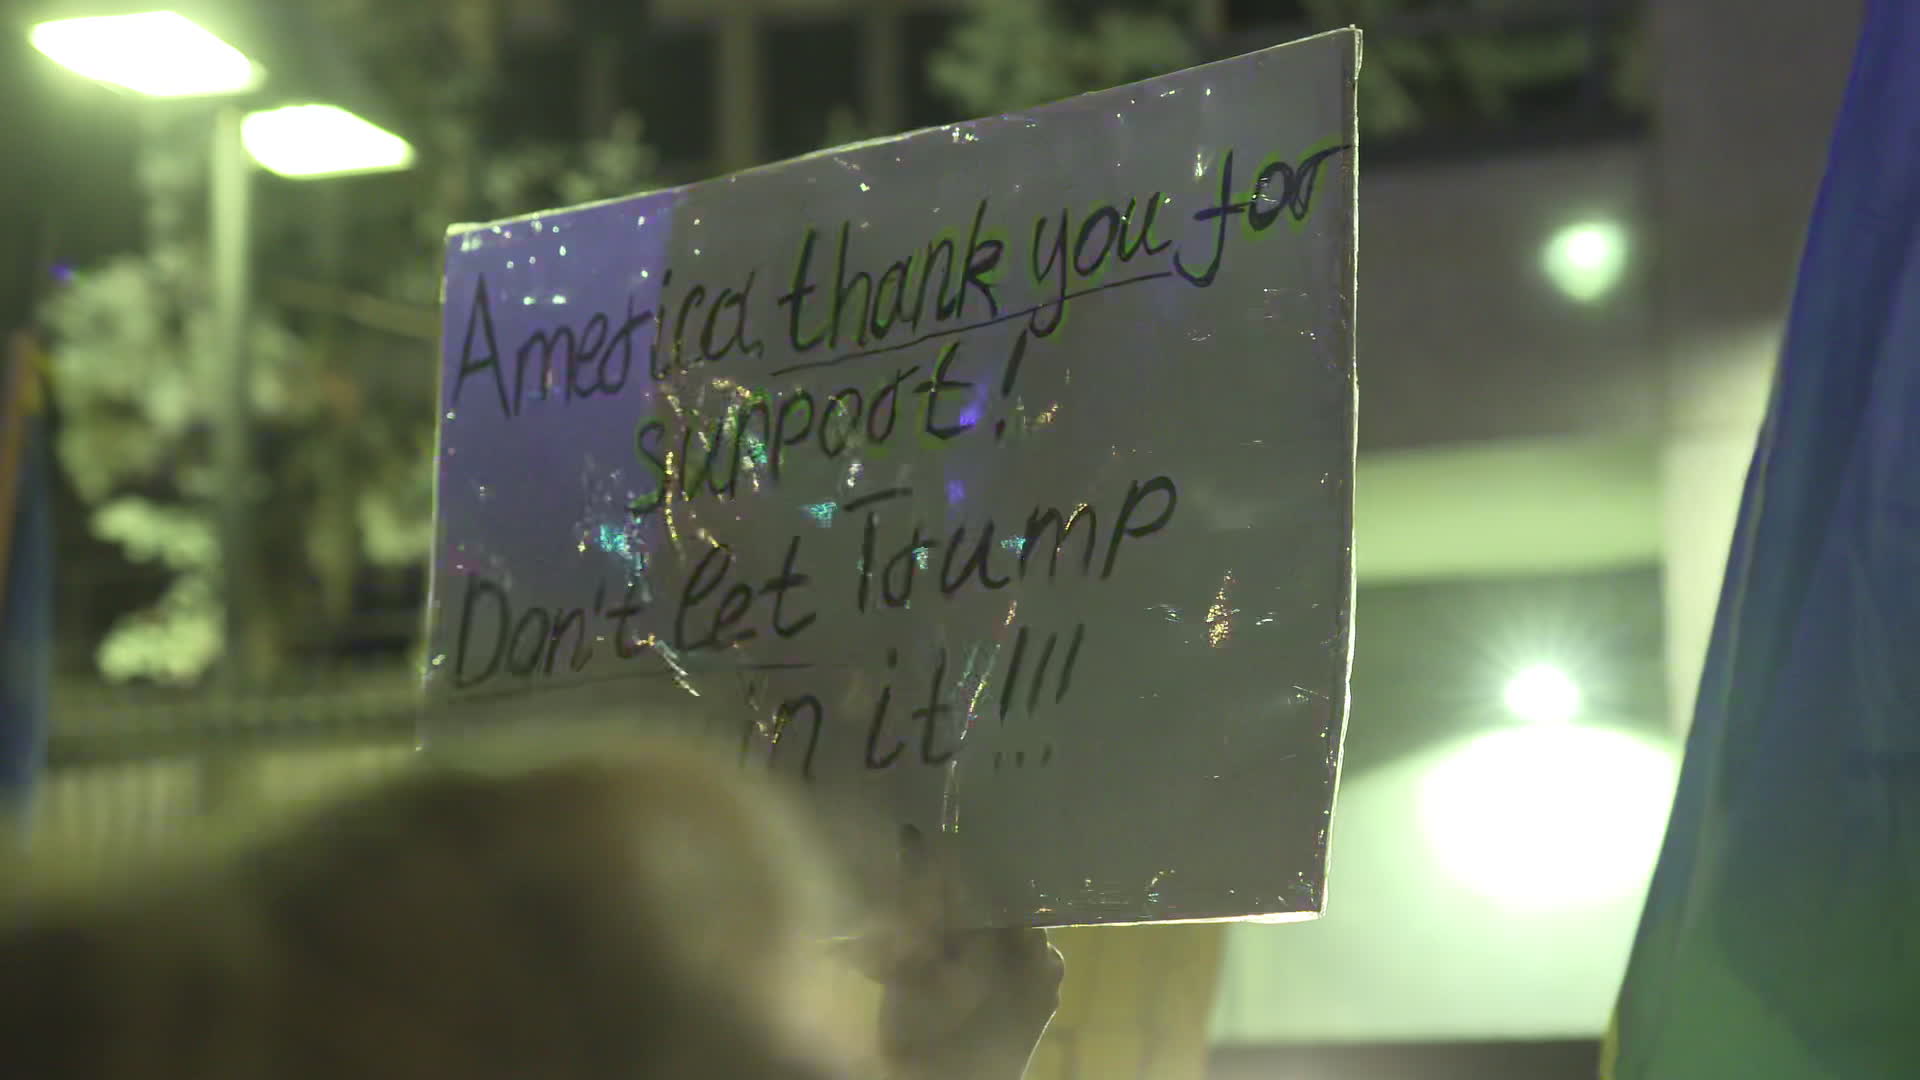 America, thank you for
support!
Don't let Trump
in it!!!